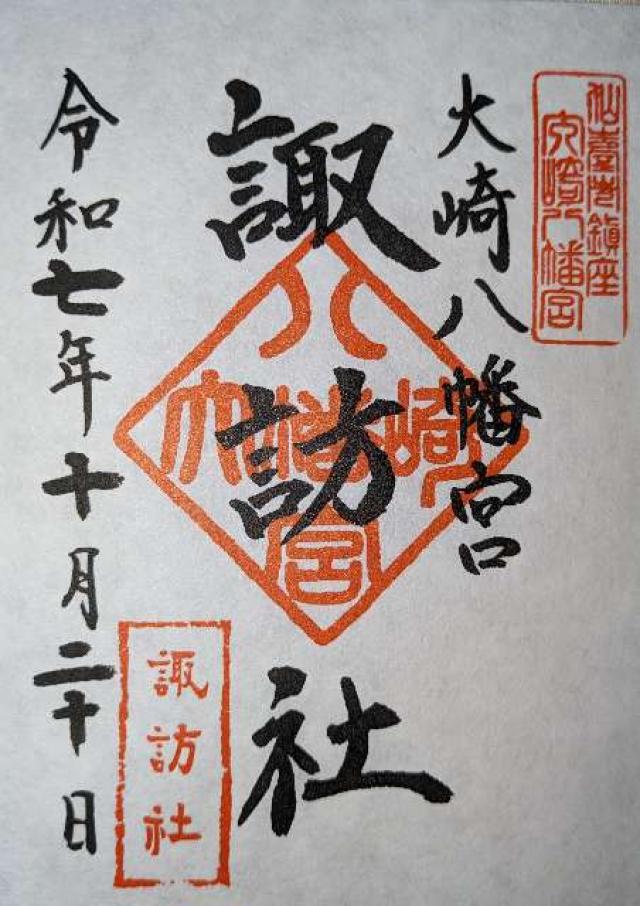 仙臺総鎮座
大崎八幡宮
大崎八幡宮
諏訪社
大崎八幡宮
諏訪社
令和七年十月二十日